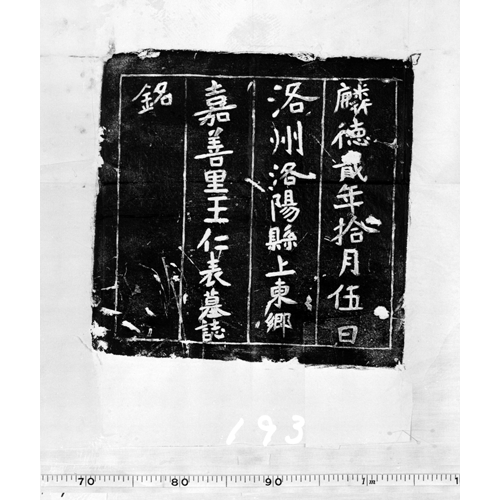 麟德貳年拾月伍日
洛州洛陽縣上東鄉
嘉善里王仁表墓誌
銘
193
70 80 90 1m